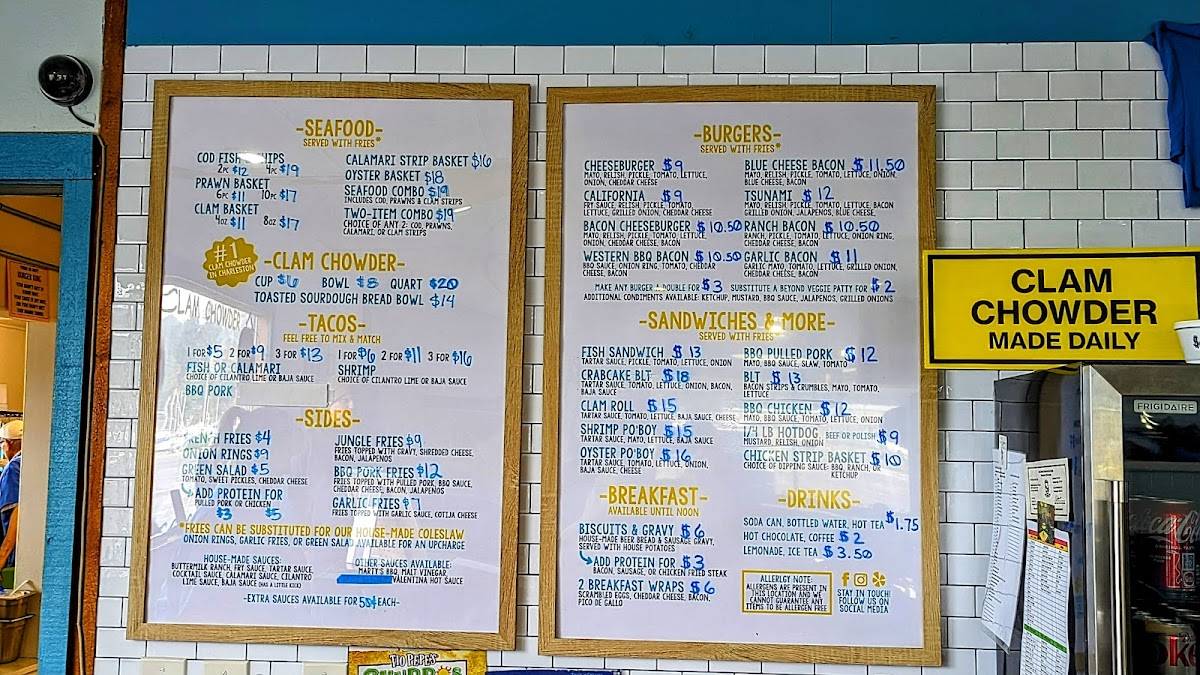 -SEAFOOD-
SERVED WITH FRIES*
COD FISH CHIPS
2PC $12 4PC $19
PRAWN BASKET
6PC $11 10PC $17
CLAM BASKET
4OZ $11 8OZ $17
CALAMARI STRIP BASKET $16
OYSTER BASKET $18
SEAFOOD COMBO $19
INCLUDES COD, PRAWNS & CLAM STRIPS
TWO-ITEM COMBO $19
CHOICE OF ANY 2: COD, PRAWNS,
CALAMARI, OR CLAM STRIPS
#1
CLAM CHOWDER
IN CHARLESTON
-CLAM CHOWDER-
CUP $6 BOWL $8 QUART $20
TOASTED SOURDOUGH BREAD BOWL $14
-TACOS-
FEEL FREE TO MIX & MATCH
1 FOR $5 2 FOR $9 3 FOR $13
FISH OR CALAMARI
CHOICE OF CILANTRO LIME OR BAJA SAUCE
BBQ PORK
1 FOR $6 2 FOR $11 3 FOR $16
SHRIMP
CHOICE OF CILANTRO LIME OR BAJA SAUCE
-SIDES-
FRENCH FRIES $4
ONION RINGS $9
GREEN SALAD $5
TOMATO, SWEET PICKLES, CHEDDAR CHEESE
ADD PROTEIN FOR
PULLED PORK OR CHICKEN
$3 $5
JUNGLE FRIES $9
FRIES TOPPED WITH GRAVY, SHREDDED CHEESE,
BACON, JALAPENOS
BBQ PORK FRIES $12
FRIES TOPPED WITH PULLED PORK, BBQ SAUCE,
CHEDDAR CHEESE, BACON, JALAPENOS
GARLIC FRIES $7
FRIES TOPPED WITH GARLIC SAUCE, COTIJA CHEESE
*FRIES CAN BE SUBSTITUTED FOR OUR HOUSE-MADE COLESLAW
ONION RINGS, GARLIC FRIES, OR GREEN SALAD AVAILABLE FOR AN UPCHARGE
HOUSE-MADE SAUCES:
BUTTERMILK RANCH, FRY SAUCE, TARTAR SAUCE,
COCKTAIL SAUCE, CALAMARI SAUCE, CILANTRO
LIME SAUCE, BAJA SAUCE (HAS A LITTLE KICK)
OTHER SAUCES AVAILABLE:
MARTY'S BBQ, MALT VINEGAR,
VALENTINA HOT SAUCE
-EXTRA SAUCES AVAILABLE FOR 55¢ EACH-
-BURGERS-
SERVED WITH FRIES*
CHEESEBURGER $9
MAYO, RELISH, PICKLE, TOMATO, LETTUCE,
ONION, CHEDDAR CHEESE
CALIFORNIA $9
FRY SAUCE, RELISH, PICKLE, TOMATO,
LETTUCE, GRILLED ONION, CHEDDAR CHEESE
BACON CHEESEBURGER $10.50
MAYO, RELISH, PICKLE, TOMATO, LETTUCE,
ONION, CHEDDAR CHEESE, BACON
WESTERN BBQ BACON $10.50
BBQ SAUCE, ONION RING, TOMATO, CHEDDAR
CHEESE, BACON
BLUE CHEESE BACON $11.50
MAYO, RELISH, PICKLE, TOMATO, LETTUCE, ONION,
BLUE CHEESE, BACON
TSUNAMI $12
MAYO, RELISH, PICKLE, TOMATO, LETTUCE, BACON
GRILLED ONION, JALAPENOS, BLUE CHEESE,
RANCH BACON $10.50
RANCH, PICKLE, TOMATO, LETTUCE, ONION RING,
CHEDDAR CHEESE, BACON
GARLIC BACON $11
GARLIC MAYO, TOMATO, LETTUCE, GRILLED ONION,
CHEDDAR CHEESE, BACON
MAKE ANY BURGER A DOUBLE FOR $3 SUBSTITUTE A BEYOND VEGGIE PATTY FOR $2
ADDITIONAL CONDIMENTS AVAILABLE: KETCHUP, MUSTARD, BBQ SAUCE, JALAPENOS, GRILLED ONIONS
-SANDWICHES & MORE-
SERVED WITH FRIES*
FISH SANDWICH $13
TARTAR SAUCE, PICKLE, TOMATO, LETTUCE, ONION
CRABCAKE BLT $18
TARTAR SAUCE, TOMATO, LETTUCE, ONION, BACON,
BAJA SAUCE
CLAM ROLL $15
TARTAR SAUCE, TOMATO, LETTUCE, BAJA SAUCE, CHEESE
SHRIMP PO'BOY $15
TARTAR SAUCE, MAYO, LETTUCE, BAJA SAUCE
OYSTER PO'BOY $16
TARTAR SAUCE, TOMATO, LETTUCE, ONION,
BAJA SAUCE, CHEESE
BBQ PULLED PORK $12
MAYO, BBQ SAUCE, SLAW, TOMATO
BLT $13
BACON STRIPS & CRUMBLES, MAYO, TOMATO,
LETTUCE
BBQ CHICKEN $12
MAYO, BBQ SAUCE, TOMATO, LETTUCE, ONION
1/4 LB HOTDOG, BEEF OR POLISH $9
MUSTARD, RELISH, ONION
CHICKEN STRIP BASKET $10
CHOICE OF DIPPING SAUCE: BBQ, RANCH, OR
KETCHUP
-BREAKFAST-
AVAILABLE UNTIL NOON
BISCUITS & GRAVY $6
HOUSE-MADE BEER BREAD & SAUSAGE GRAVY,
SERVED WITH HOUSE POTATOES
ADD PROTEIN FOR $3
BACON, SAUSAGE, OR CHICKEN FRIED STEAK
2 BREAKFAST WRAPS $6
SCRAMBLED EGGS, CHEDDAR CHEESE, BACON,
PICO DE GALLO
-DRINKS-
SODA CAN, BOTTLED WATER, HOT TEA $1.75
HOT CHOCOLATE, COFFEE $2
LEMONADE, ICE TEA $3.50
ALLERGY NOTE:
ALLERGENS ARE PRESENT IN
THIS LOCATION AND WE
CANNOT GUARANTEE ANY
ITEMS TO BE ALLERGEN FREE
STAY IN TOUCH!
FOLLOW US ON
SOCIAL MEDIA
CLAM
CHOWDER
MADE DAILY
FRIGIDAIRE
CLAM CHOWDER
BURGER KING
TIO PEPE'S
CHURROS